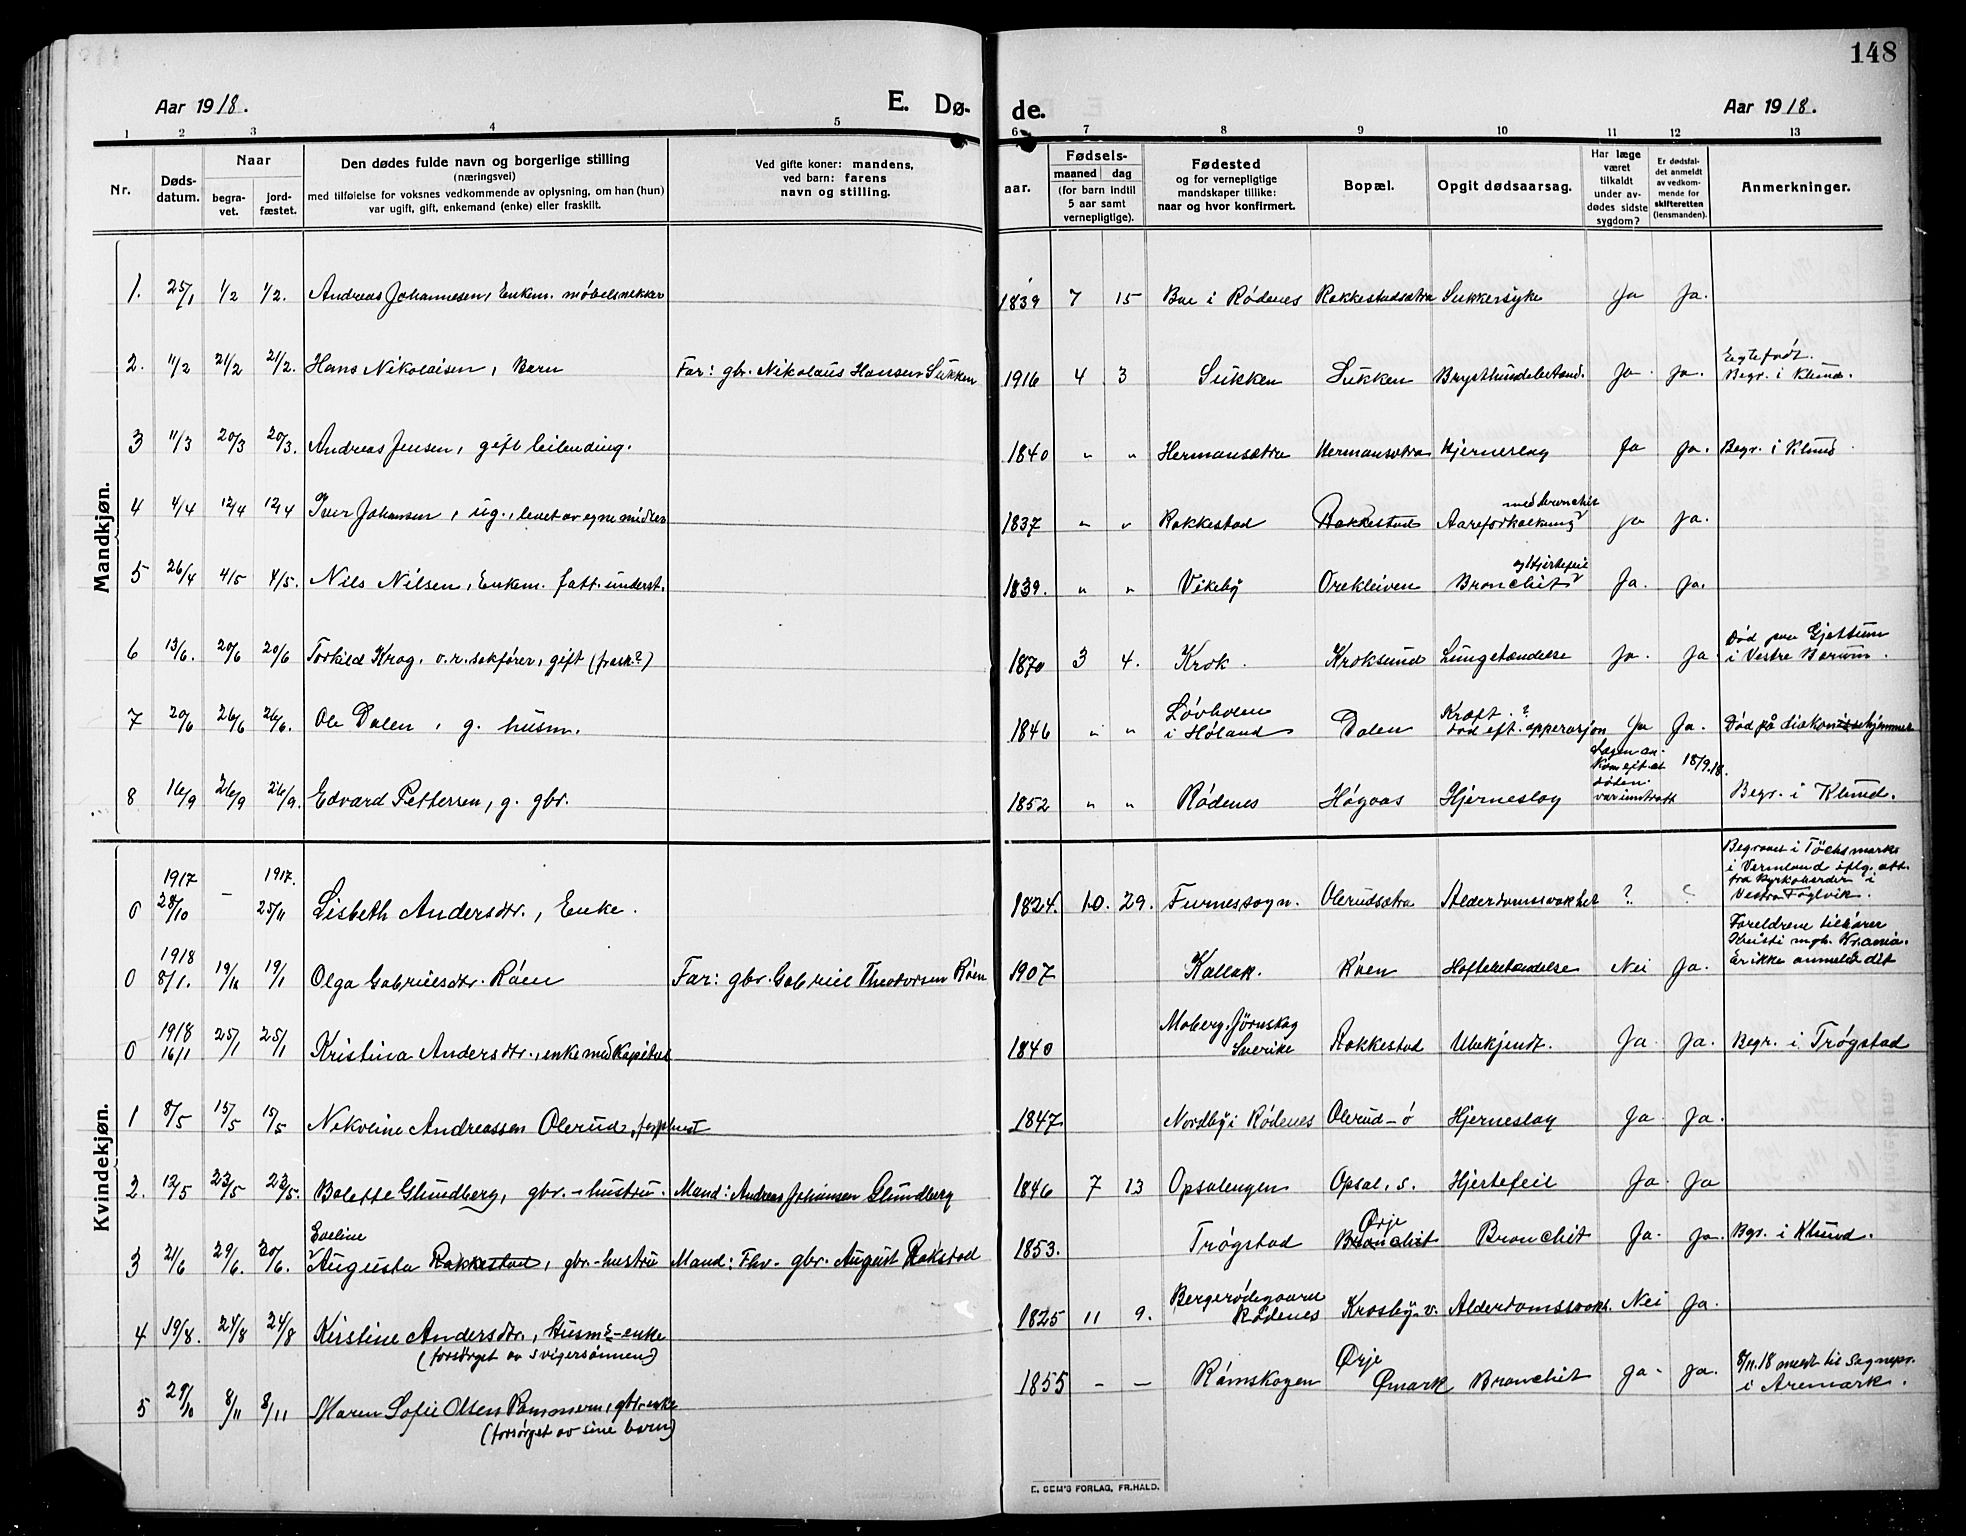 148
Aar 1918.
E. Dø-
de.
Aar 1918.
1 2 3 4 5 6 7 8 9 10 11 12 13
Nr.
Døds-
datum.
Naar
begra-
vet.
jord-
fæstet.
Den dødes fulde navn og borgerlige stilling
(næringsvei)
med tilføielse for voksnes vedkommende av oplysning, om han (hun)
var ugift, gift, enkemand (enke) eller fraskilt.
Ved gifte koner: mandens,
ved barn: farens
navn og stilling.
aar.
Fødsels-
maaned dag
(for barn indtil
5 aar samt
vernepligtige).
Fødested
og for vernepligtige
mandskaper tillike:
naar og hvor konfirmert.
Bopæl.
Opgit dødsaarsag.
Har læge
været
tilkaldt
under av-
dødes sidste
sygdom?
Er dødsfal-
det anmeldt
av vedkom-
mende for
skifteretten
(lensmanden).
Anmerkninger.
Mandkjøn.
1. 25/1 1/2 1/2. Andreas Johannesen, Enkem. møbelsnekker 1839 7 15 Bue i Rødenes Rakkestadsætra Sukkersyke Ja Ja.
2. 11/2 21/2 21/2. Hans Nikolaisen, Barn Far: gbr. Nikolaus Hansen Sukken 1916 4 3 Sukken Sukken Ja. Ja. Egtefødt.
Begr. i Klund.
3 11/3 20/3 20/3. Andreas Jensen, gift leilending. 1840 " " Hermansætra Hermansætra Hjerneslag Ja Ja. Begr. i Klund
4 4/4 12/4 12/4 Iver Johansen, ug., levet av egne midler 1837 " " Rakkestad Rakkestad Aareforkalkning med bronchit ja Ja.
5 26/4 4/5 4/5. Nils Nilsen, Enkem. fatt. underst. 1839. " " Vikeby Orekleiven Bronchit og Hjertefeil Ja. Ja.
6 13/6. 20/6 20/6 Torkild Krog, o.r. sakfører, gift (frask?) 1870 3 4. Krok. Kroksund Lungebetændelse Ja. Ja Død paa Gjettum
i Vestre Bærum.
7 20/6 26/6 26/6. Ole Dalen, g. husm. 1846 " " Løvholen
i Høland Dalen Kræft.?
død eft. opperasjon Ja Ja. Død på diakonissehjemmet
8 16/9 26/9 26/9. Edvard Pettersen, g. gbr. 1852 " " Rødenes Høgaas Hjerneslag Lægen an-
kom eft. at
døden
var inntraft 18/9.18. Begr. i Klund.
Kvindekjøn.
0 1917 28/10 - 1917. 25/11 Lisbeth Andersdtr., Enke. 1824. 10. 29. Furnessogn. Olerudsætra Alderdomssvakhet ? ? Begravet i Töcksmarks
i Vermland iflg. att.
fra Kyrkoherden i
Vestra Foglvik.
0 1918 8/1. 19/1 19/1 Olga Gabrielsdtr. Røen Far: gbr. Gabriel Theodorsen Røen 1907 Kallak. Røen Hoftebetændelse Nei Ja. Foreldrene tilhører
mgh. Kr.ania.
Er ikke anmeldt dit
0 1918 16/1 25/1 25/1 Kristina Andersdtr., enke med kapital 1840 Moberg. Jørnskog
Sverike Rakkestad Ubekjendt. Ja Ja. Begr. i Trøgstad
1 8/5 15/5 15/5 Nikoline Andreassen Olerud, 1847 Nordby i Rødenes Olerud - ø Hjerneslag Ja. Ja.
2. 12/5 23/5 23/5. Bolette Glundberg, gbr.-hustru. Mand: Andreas Johansen Glundberg 1846 7 13 Opsalengen Opsal, s. Hjertefeil Ja. Ja
3 21/6 29/6. 20/6. Eveline
Augusta Rakkestad, gbr.-hustru Mand: Fhv. gbr. August Rakstad 1853. Trøgstad Ørje
Bronchit Bronchit Ja. Ja. Bgr. i Klund.
4 19/8. 24/8 24/8 Kirstine Andersdtr., Husm.-enke
(forsørget av svigersønnen) 1825 11 9. Bergerødegaard
Rødenes Krosby v. Alderdomssvakh. Nei Ja.
5 29/10 8/11 8/11 Maren Sofie Olsen Pommern, gbr. enke
(forsørget av sine barn) 1855 - - Rømskogen Ørje
Ømark Bronchit Ja. Ja. 8/11.18 meldt til Sognepr.
i Aremark.
E. SEM'S FORLAG, FR.HALD.